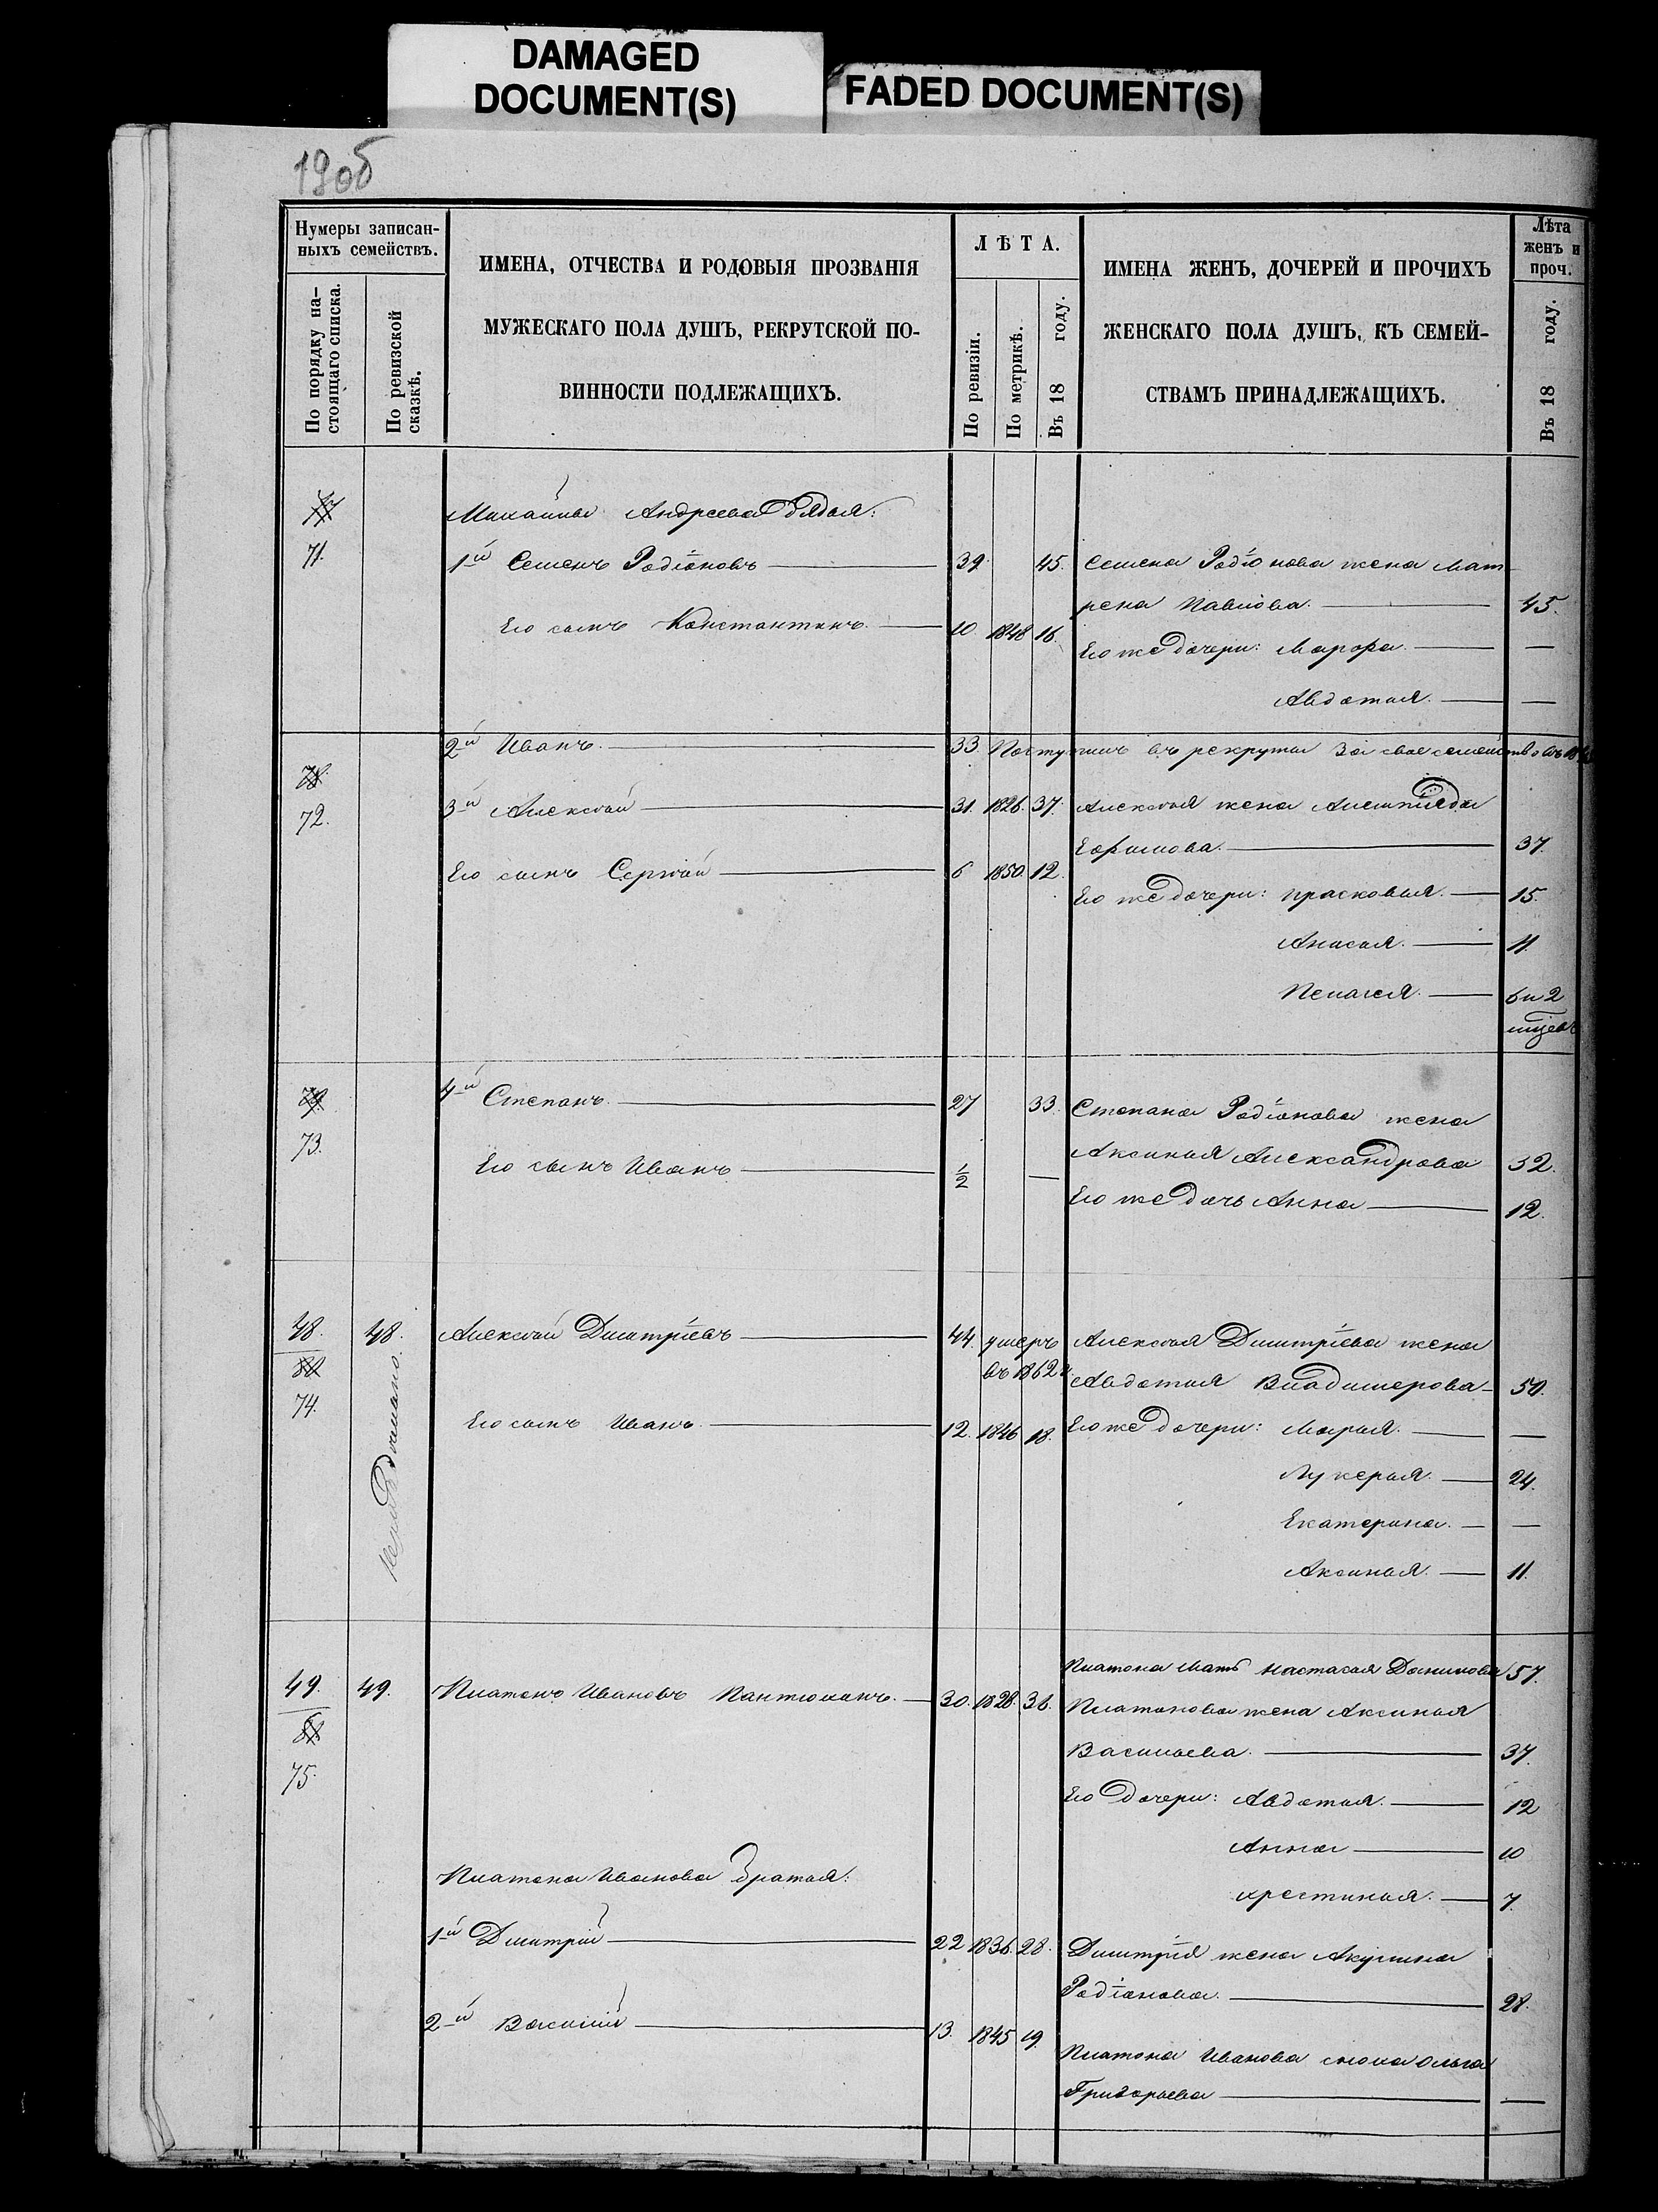 DAMAGED
DOCUMENT(S)
FADED DOCUMENT(S)
19об
Нумеры записан-
ныхъ семействъ.
По порядку на-
стоящаго списка.
По ревизской
сказкѣ.
ИМЕНА, ОТЧЕСТВА И РОДОВЫЯ ПРОЗВАНІЯ
МУЖЕСКАГО ПОЛА ДУШЪ, РЕКРУТСКОЙ ПО-
ВИННОСТИ ПОДЛЕЖАЩИХЪ.
ЛѢТА.
По ревизіи.
По метрикѣ.
Въ 18 году.
ИМЕНА ЖЕНЪ, ДОЧЕРЕЙ И ПРОЧИХЪ
ЖЕНСКАГО ПОЛА ДУШЪ, КЪ СЕМЕЙ-
СТВАМЪ ПРИНАДЛЕЖАЩИХЪ.
Лѣта
женъ и
проч.
Въ 18 году.
Михайлы Андреева дядья:
71. 1й Семенъ Родіоновъ 39. 45. Семена Родіонова жена Мат-
рена Павлова. 45.
Его сынъ Константинъ. 10. 1848 16.
Его же дочери: Марфа. —
Авдотья. —
2й Иванъ. 33. Поступилъ въ рекруты за свое семейство въ
78.
72. 3й Алексѣй 31. 1826. 37. Алексѣя жена
Ефимова. 37.
Его сынъ Сергѣй 6 1850. 12.
Его же дочери: Прасковья. 15.
Анисья. 11.
Пелагея. 6 и 2
мѣсец.
79.
4й Степанъ. 27 33. Степана Родіонова жена
73.
Аксинья Александрова 32.
Его сынъ Иванъ ½ —
Его же дочь Анна 12.
48. 48. Алексѣй Дмитріевъ 44. умеръ Алексѣя Дмитріева жена
80 въ 1862 г. Авдотья Владимерова 50.
74.
Его сынъ Иванъ. 12. 1846 18. Его же дочери: Марья. —
Лукерья. 24.
Екатерина. —
Аксинья. 11.
Платона мать Настасья Данилова 57.
49. 49. Платонъ Ивановъ Пантюхинъ. 30. 1828. 36. Платонова жена Аксинья
81.
Васильева. 37.
75.
Его дочери: Авдотья. 12
Анна 10
Платона Иванова братья:
Хрестинья. 7.
1й Дмитрій 22 1836. 28. Дмитрія жена Акулина
Родіонова. 28.
2й Василій 13. 1845 19.
Платона Иванова сноха Ольга
Григорьева —